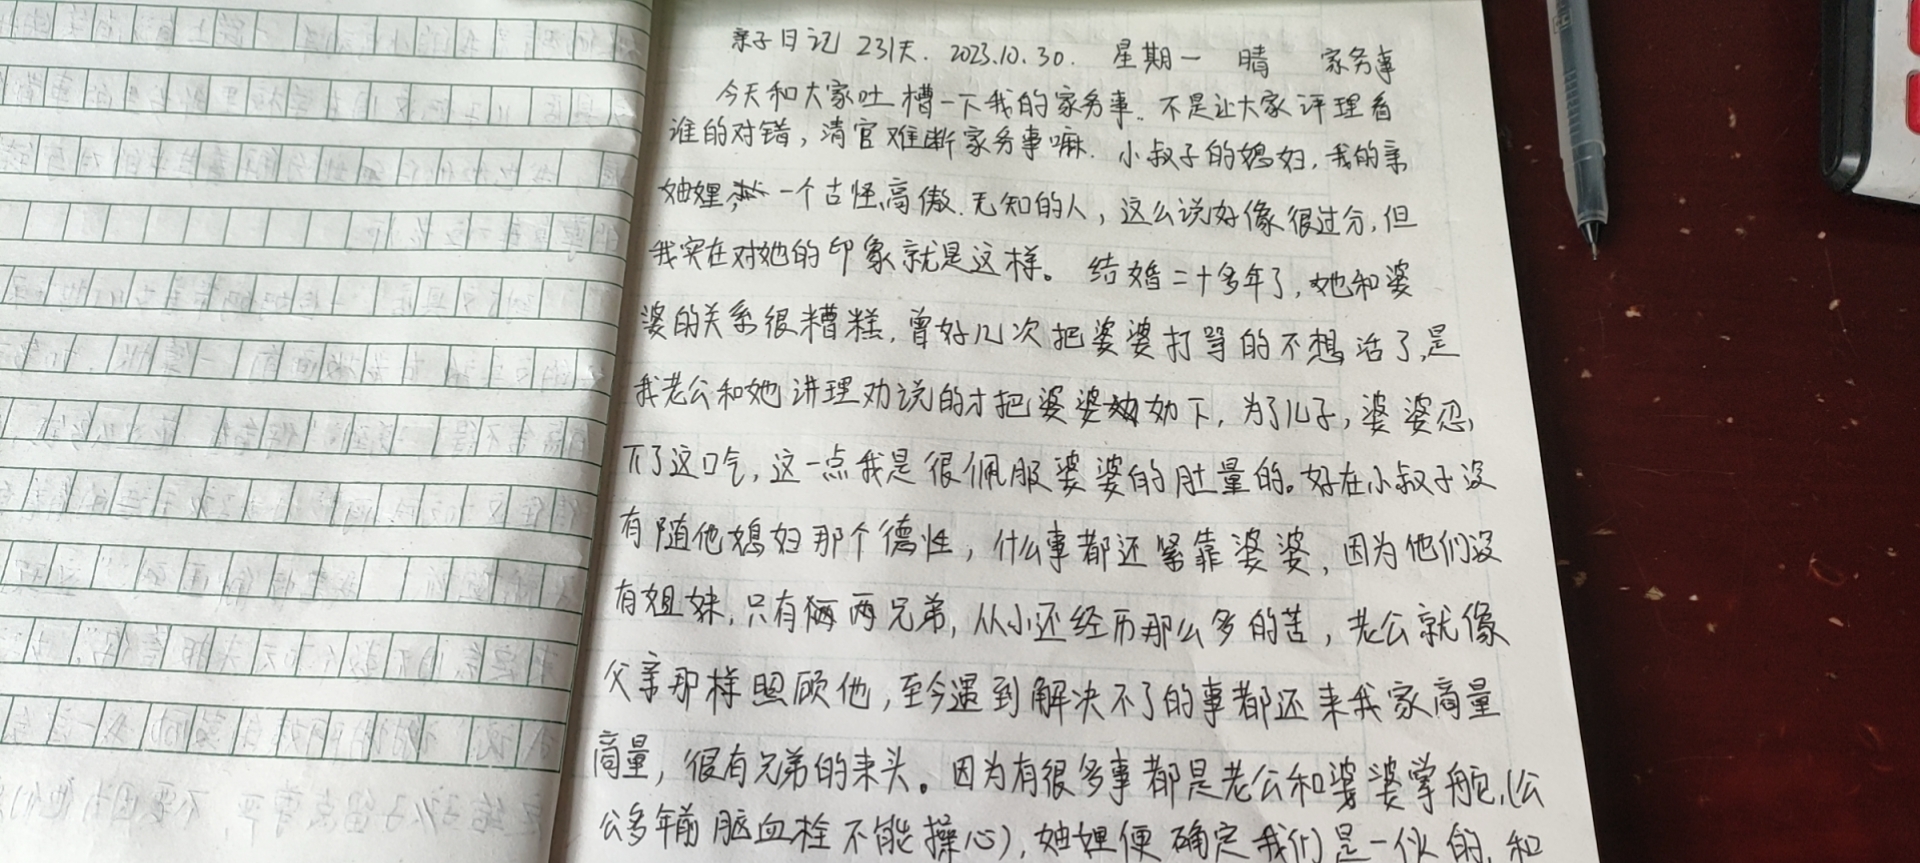 亲子日记 231天. 2023.10.30. 星期一 晴 家务事
今天和大家吐槽一下我的家务事. 不是让大家评理看
谁的对错，清官难断家务事嘛. 小叔子的媳妇，我的亲
妯娌, 一个古怪高傲.无知的人，这么说好像很过分，但
我实在对她的印象就是这样。结婚二十多年了，她和婆
婆的关系很糟糕，曾好几次把婆婆打骂的不想活了，是
我老公和她讲理劝说的才把婆婆劝下，为了儿子，婆婆忍
下了这口气，这一点我是很佩服婆婆的肚量的。好在小叔子没
有随他媳妇那个德性，什么事都还紧靠婆婆，因为他们没
有姐妹，只有俩两兄弟，从小还经历那么多的苦，老公就像
父亲那样照顾他，至今遇到解决不了的事都还来我家商量
商量，很有兄弟的来头。因为有很多事都是老公和婆婆掌舵，(公
公多年前脑血栓不能操心)，妯娌便确定我们是一伙的，和